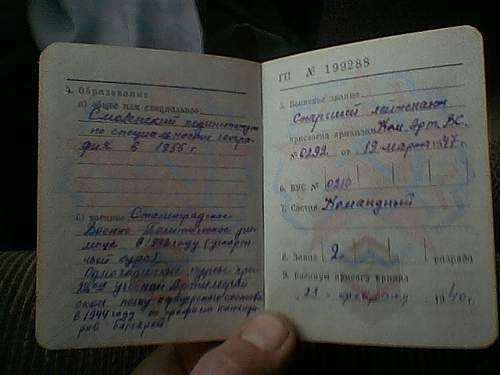 4. Образование
а) общее или специальное
Смоленский пединститут
по специальности геогра-
фия в 1955 г.
б) военное Сталинградское
Военно Политическое учи-
лище в 194 году (ускорен-
ный курс)
Одногодичные курсы при
учебном Артиллерий-
ском полку офицерского состава
в 1944 году по профилю командир-
ров батарей.
ГП № 199288
5. Воинское звание
Старший лейтенант
присвоено приказом Ком. Арт. ВС.
№ 0292 от 19 марта 1947 г.
6. ВУС № 0210
7. Состав Командный
8. Запас 2 разряда
9. Военную присягу принял
„23" февраля 1940 г.